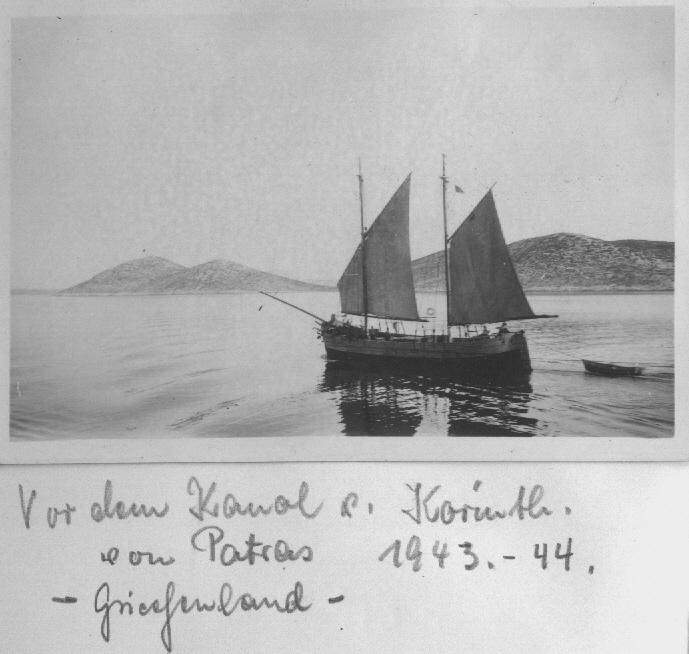 Vor dem Kanal v. Korinth.
von Patras 1943.-44.
- Griechenland -